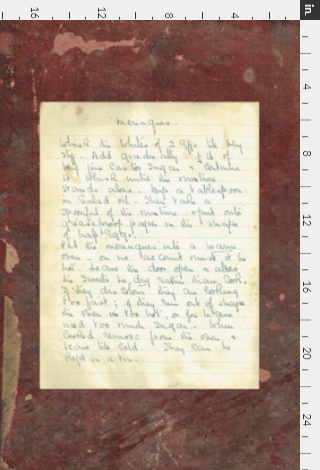 in.
16
12
8
4
4
8
12
16
20
24
Meringues.
Whisk the whites of 2 eggs till very
stiff. Add gradually ¼ lb of
very fine Castor Sugar & Continue
to whisk until the mixture
stands alone. Dip a tablespoon
in Salad oil. Then take a
spoonful of the mixture & put onto
greaseproof paper in the shape
of half eggs.
Put the meringues into a warm
oven - on no account must it be
hot. Leave the door open & allow
the sweets to dry rather than Cook.
If they discolour they are Cooking
too fast; if they run out of shape
the oven is too hot, or you have
used too much Sugar. When
Cooked remove from the oven &
leave till Cold. They can be
Kept in a tin.